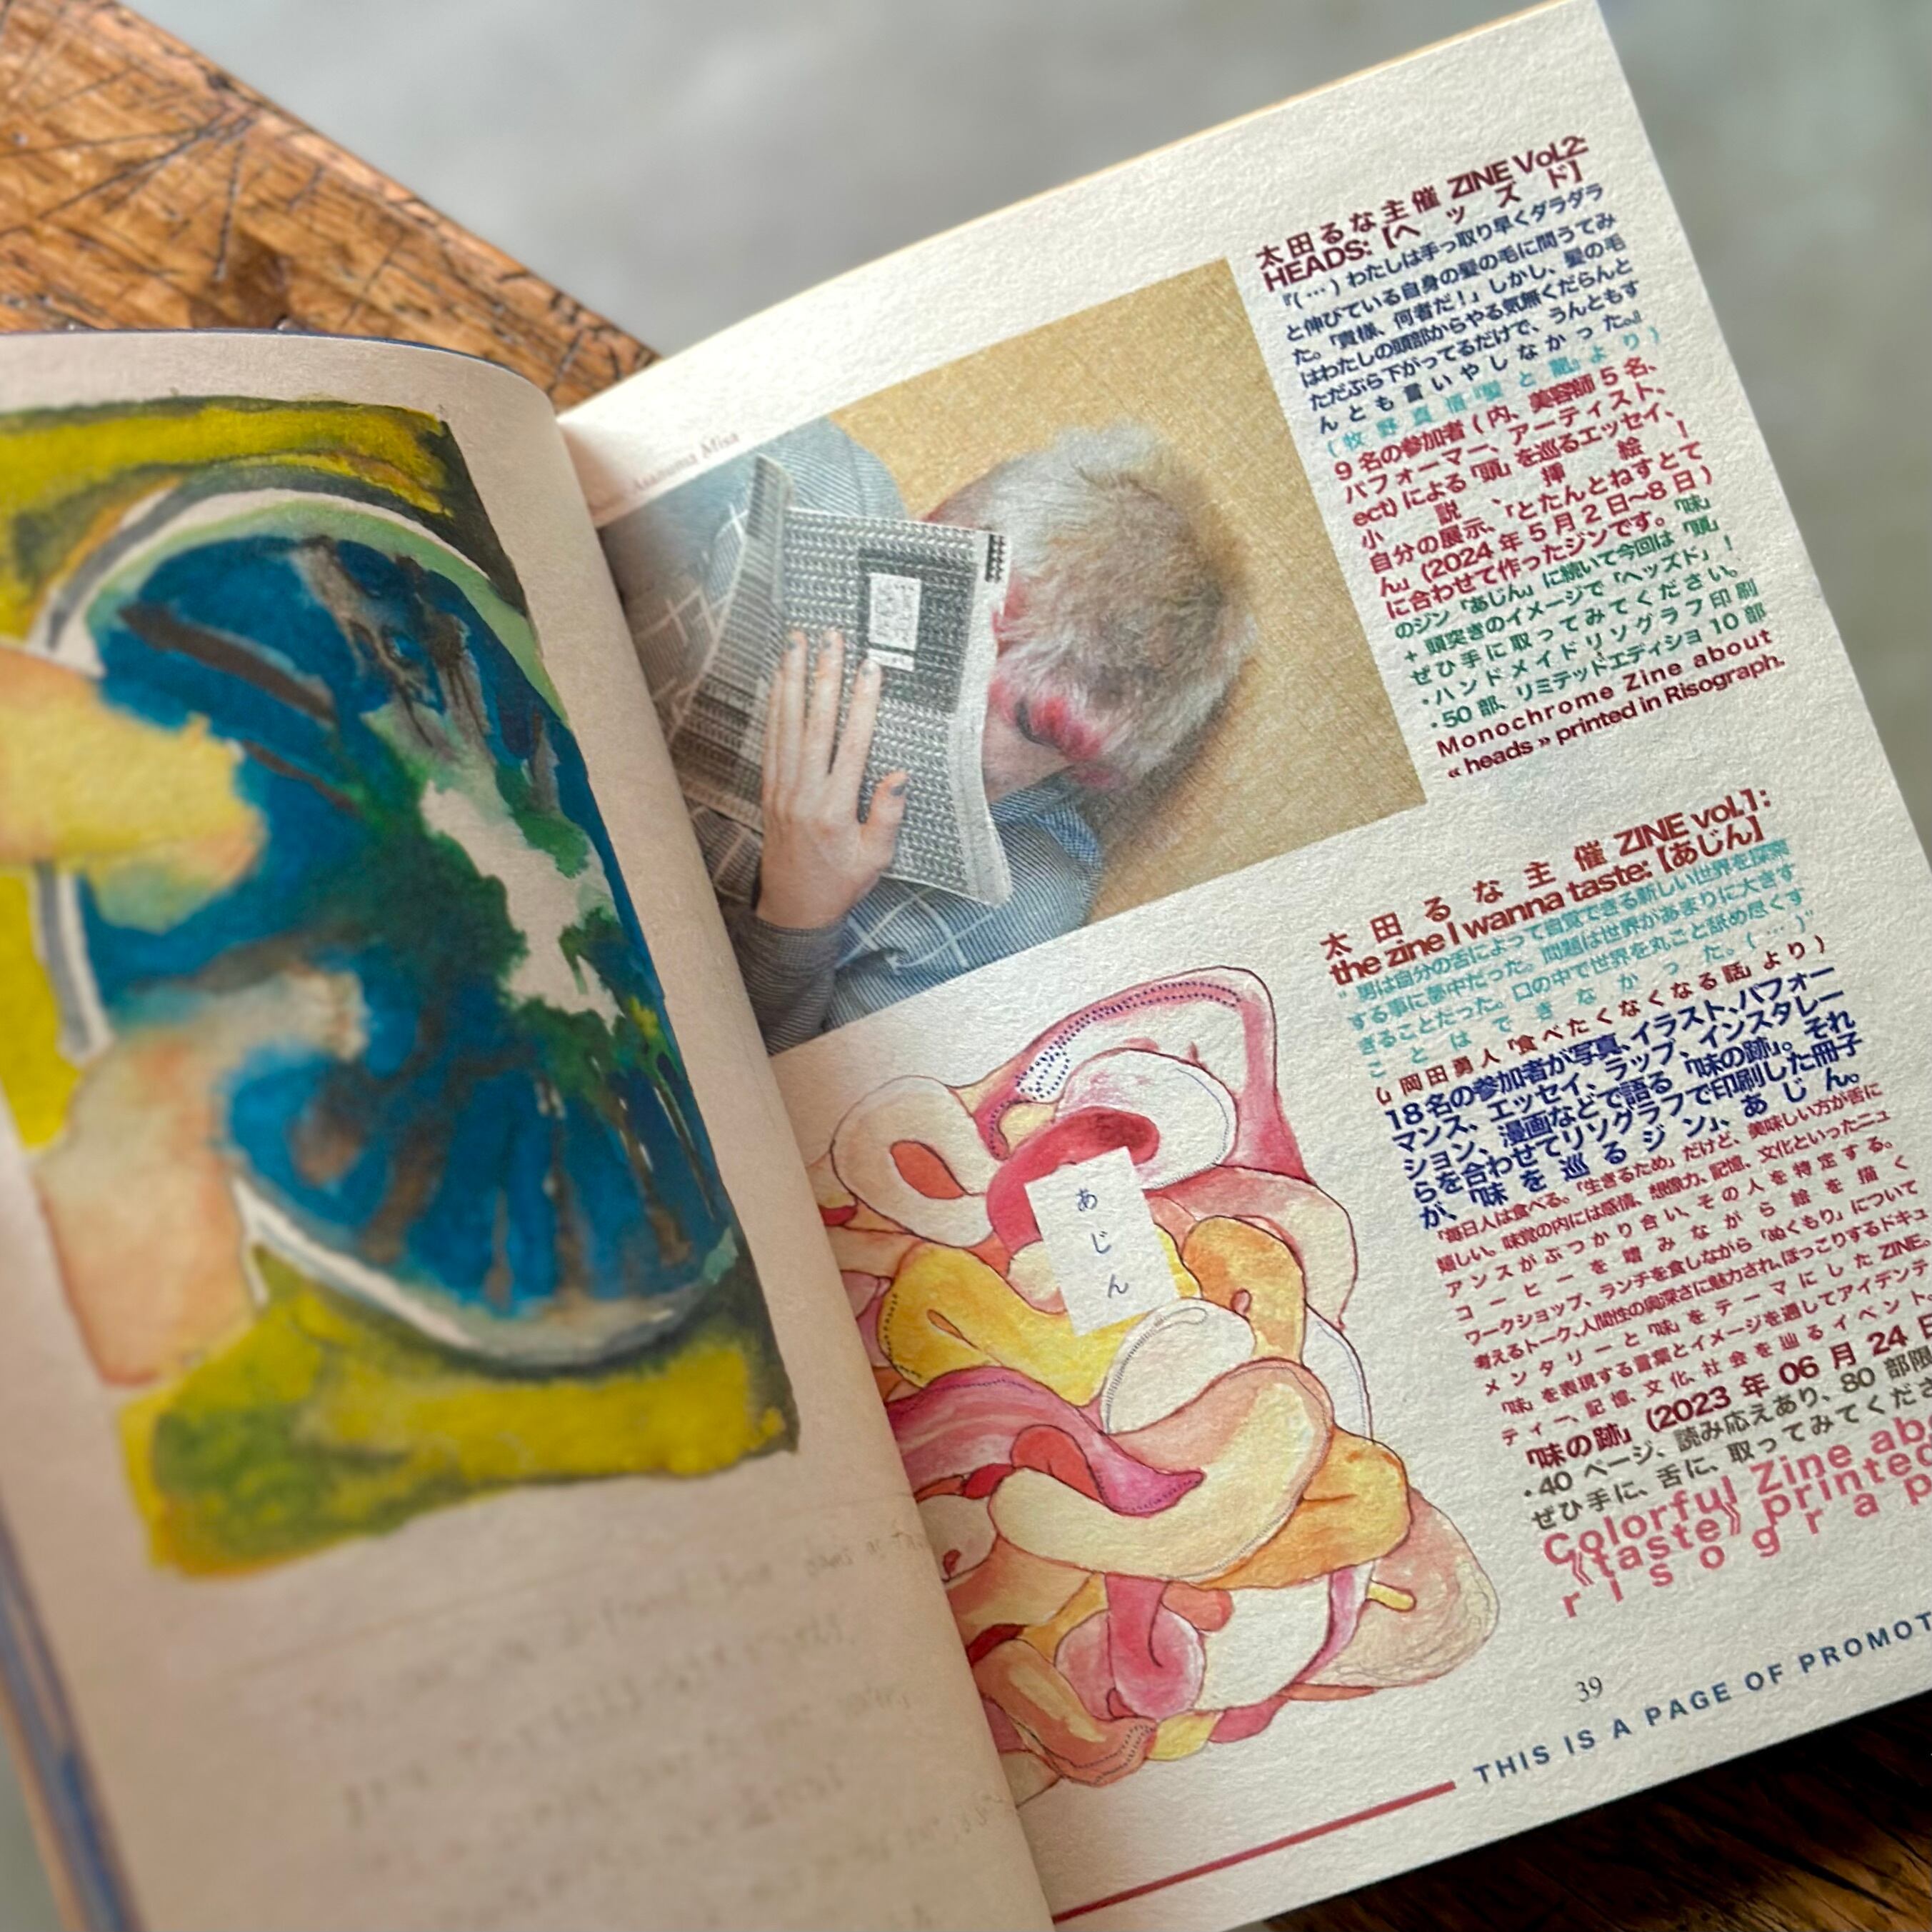 Asanuma Misa
太田るな主催 ZINE Vol.2:
HEADS:【ヘッズド】
『(…) わたしは手っ取り早くダラダラ
と伸びている自身の髪の毛に問うてみ
た。「貴様、何者だ!」しかし、髪の毛
はわたしの頭部からやる気無くだらんと
ただぶら下がってるだけで、うんともす
んとも言いやしなかった。』
(牧野真悟『髪と龍』より)
9 名の参加者 ( 内、美容師 5 名、
パフォーマー、アーティスト、
ect) による「頭」を巡るエッセイ、
小説、挿絵!
自分の展示、「とたんとねすとて
ん」(2024 年 5 月 2 日〜8 日)
に合わせて作ったジンです。「味」
のジン「あじん」に続いて今回は「頭」
+ 頭突きのイメージで「ヘッズド」!
ぜひ手に取ってみてください。
・ハンドメイドリソグラフ印刷
・50 部、リミテッドエディショ 10 部
Monochrome Zine about
« heads » printed in Risograph.
太田るな主催 ZINE vol.1:
the zine I wanna taste:【あじん】
" 男は自分の舌によって知覚できる新しい世界を探索
する事に夢中だった。問題は世界があまりに大きす
ぎることだった。口の中で世界を丸ごと舐め尽くす
ことはできなかった。(…)"
(, 岡田勇人「食べたくなくなる話」より)
18 名の参加者が写真、イラスト、パフォー
マンス、エッセイ、ラップ、インスタレー
ション、漫画などで語る「味の跡」。それ
らを合わせてリソグラフで印刷した冊子
が、「味を巡るジン」、あじん。
「毎日人は食べる。「生きるため」だけど、美味しい方が舌に
嬉しい。味覚の内には感情、想像力、記憶、文化といったニュ
アンスがぶつかり合い、その人を特定する。
コーヒーを嗜みながら絵を描く
ワークショップ、ランチを食しながら「ぬくもり」について
考えるトーク、人間性の奥深さに魅力され、ほっこりするドキュ
メンタリーと「味」をテーマにした ZINE。
「味」を表現する言葉とイメージを通してアイデンテ
ティー、記憶、文化、社会を巡るイベント、
「味の跡」(2023 年 06 月 24 日
・40 ページ、読み応えあり、80 部限
ぜひ手に、舌に、取ってみてくださ
Colorful Zine abo
《taste》printed
risograp
あじん
39
THIS IS A PAGE OF PROMOT